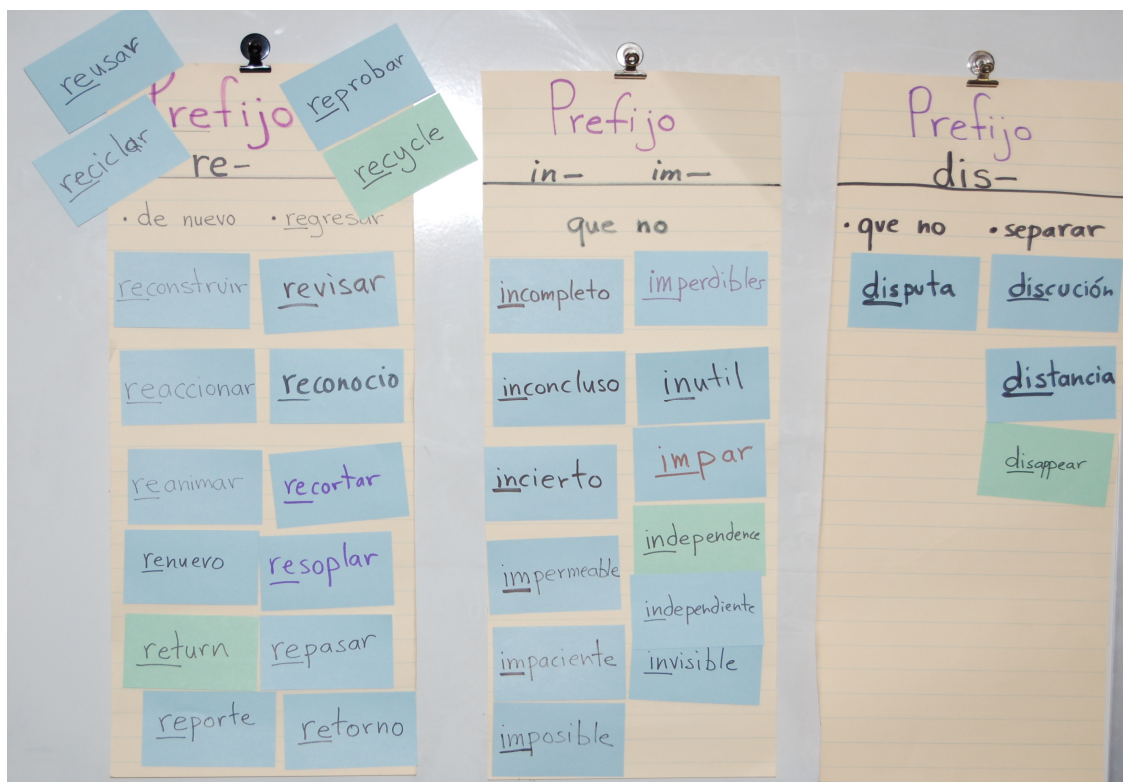 reusar
reciclar
Prefijo
reprobar
recycle
re-
• de nuevo • regresar
reconstruir revisar
reaccionar reconocio
reanimar recortar
renuevo resoplar
return repasar
reporte retorno
Prefijo
in- im-
que no
incompleto imperdibles
inconcluso inutil
incierto impar
impermeable independence
independiente
impaciente invisible
imposible
Prefijo
dis-
• que no • separar
disputa discución
distancia
disappear